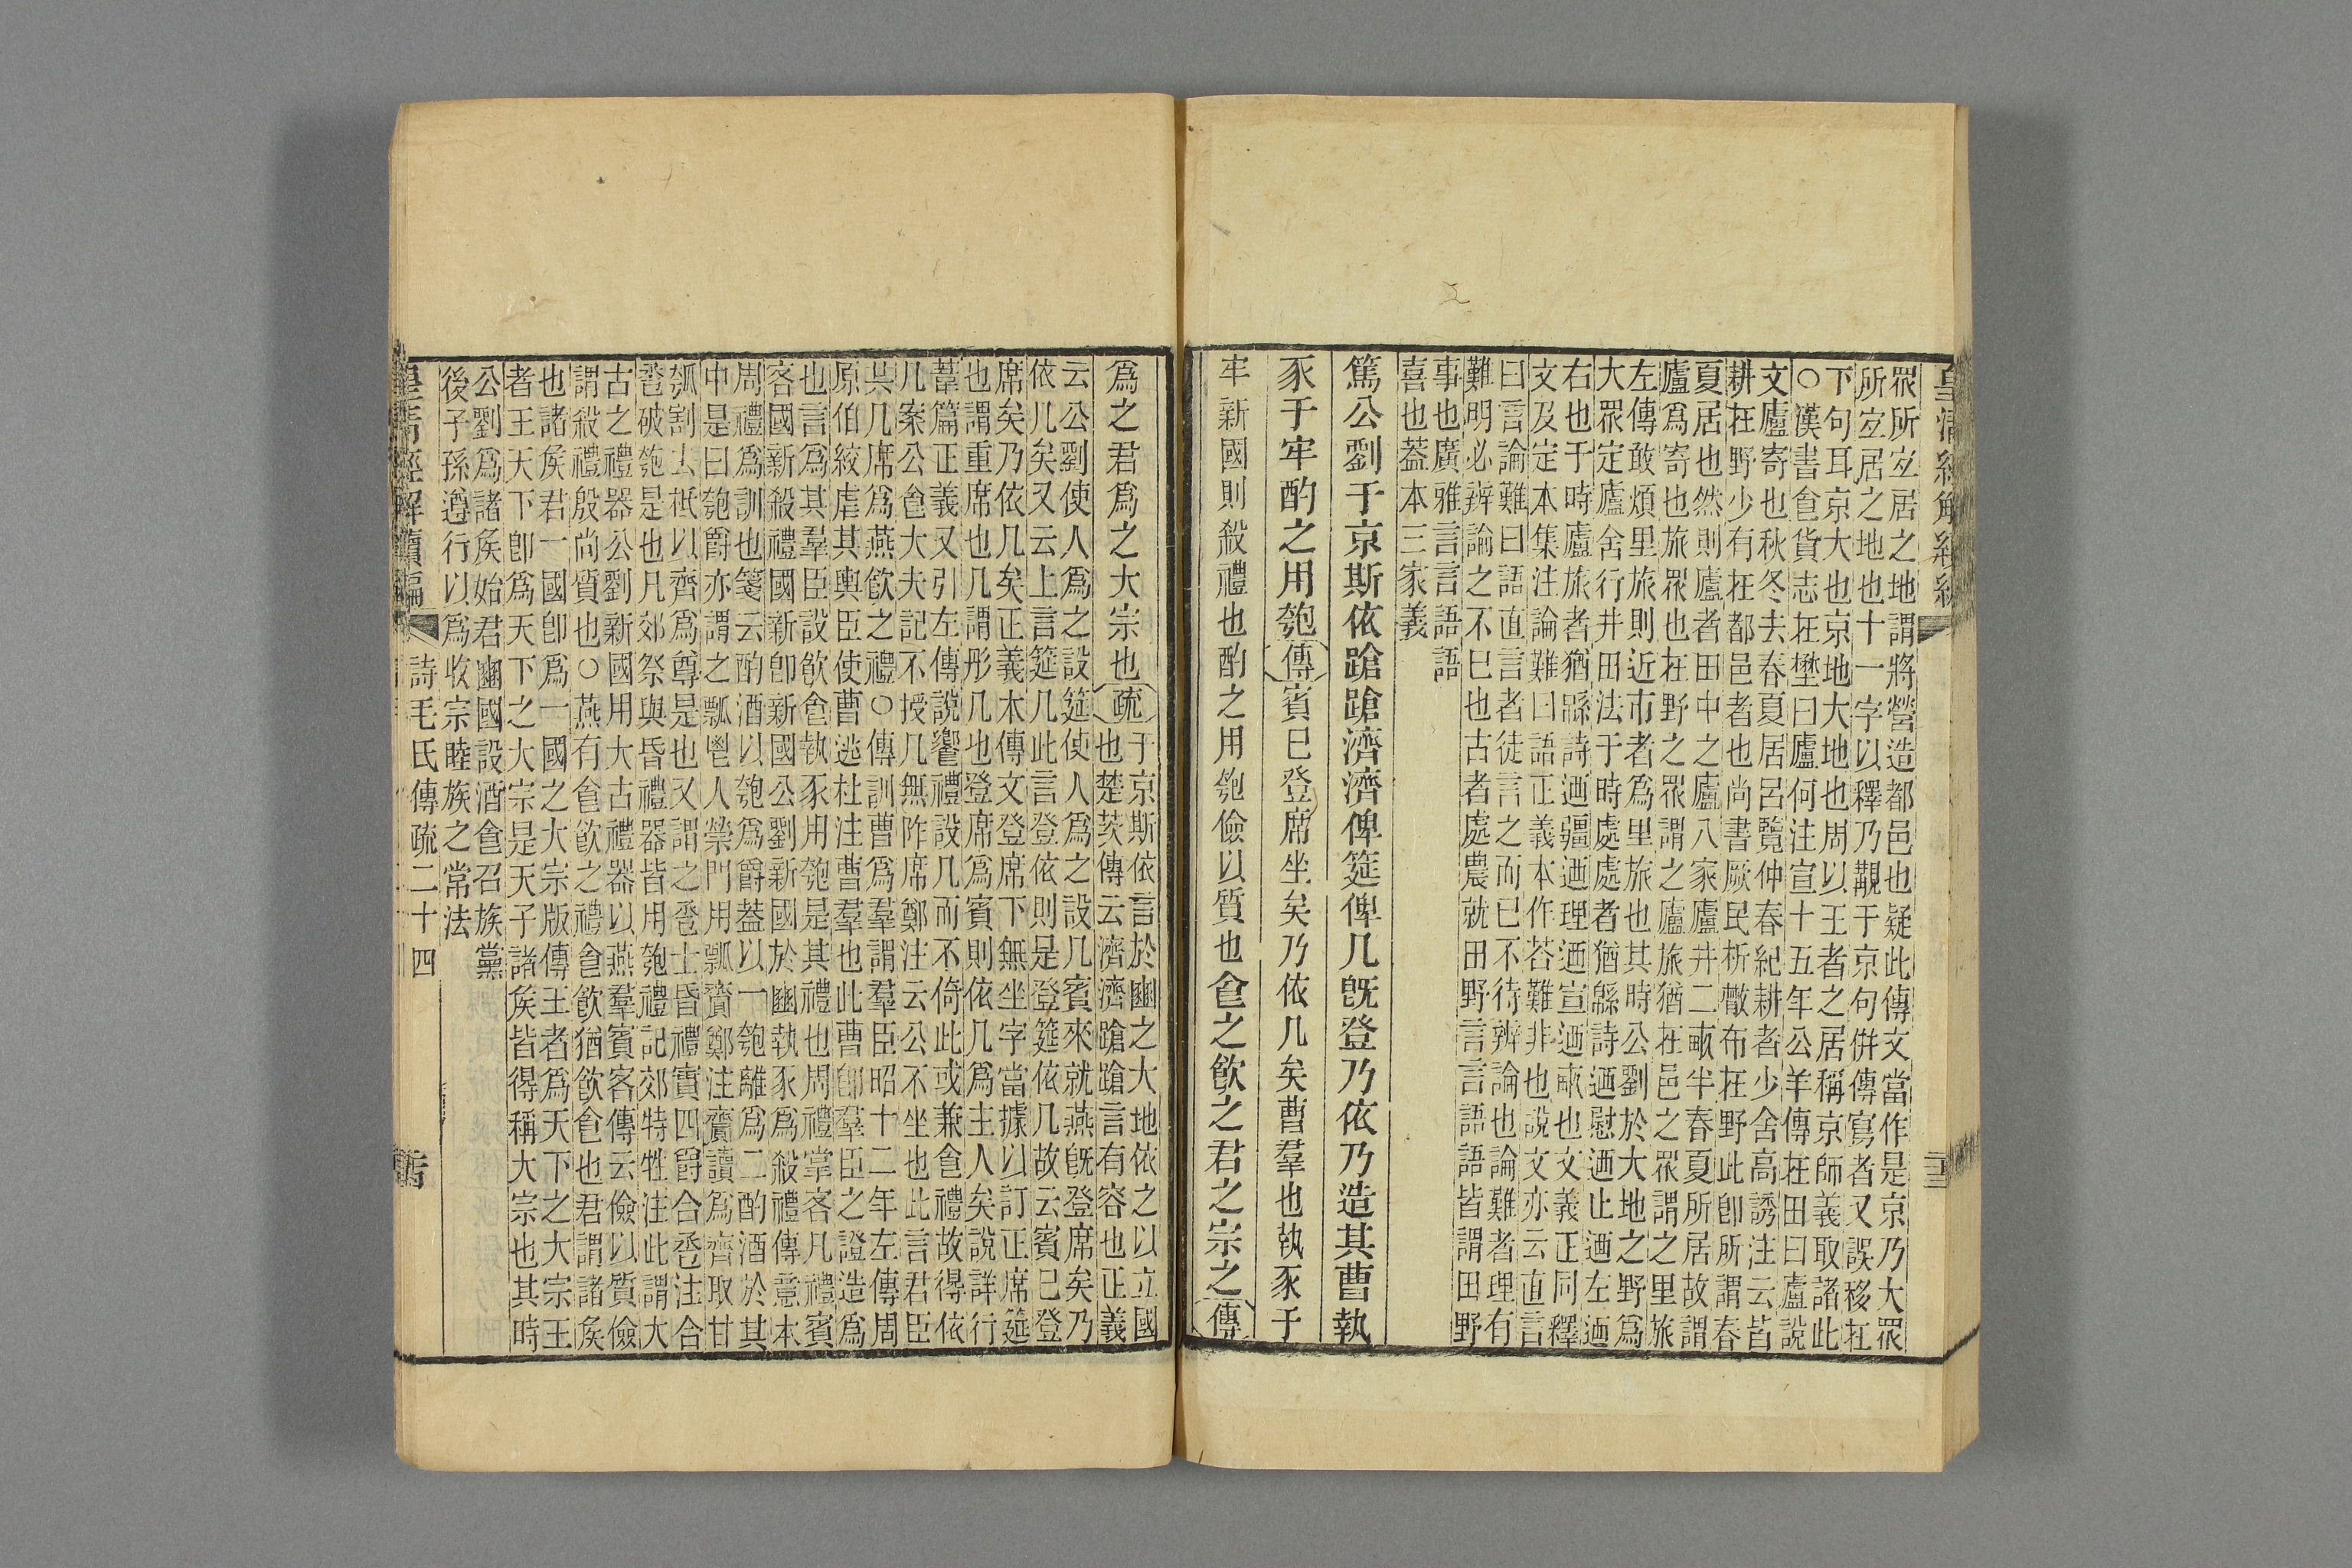 皇清經解續編
眾所宐居之地謂將營造都邑也疑此傳文當作是京乃大眾
所宐居之地也十一字以釋乃覯于京句併傳寫者又誤移在
下句耳京大也京地大地也周以王者之居稱京師義取諸此
○漢書𠊊貨志在壄曰廬何注宣十五年公羊傳在田曰廬說
文廬寄也秋冬去春夏居呂覽仲春紀耕者少舍高誘注云皆
耕在野少有在都邑者也尚書厥民析㪔布在野此卽所謂春
夏居也然則廬者田中之廬八家廬井二畝半春夏所居故謂
廬爲寄也旅眾也在野之眾謂之廬旅猶在邑之眾謂之里旅
左傳敢煩里旅則近市者爲里旅也其時公劉於大地之野爲
大眾定廬舍行井田法于時處處者猶緜詩迺慰迺止迺左迺
右也于時廬旅者猶緜詩迺疆迺理迺宣迺畝也文義正同釋
文及定本集注論難曰語正義本作荅難非也說文亦云直言
曰言論難曰語直言者徒言之而已不待辨論也論難者理有
難明必辨論之不已也古者處農就田野言言語語皆謂田野
事也廣雅言言語語
喜也葢本三家義
篤公劉于京斯依蹌蹌濟濟俾筵俾几旣登乃依乃造其曹執
豕于牢酌之用匏傳賓已登席坐矣乃依几矣曹羣也執豕于
牢新國則殺禮也酌之用匏儉以質也𠊊之飮之君之宗之傳
爲之君爲之大宗也疏于京斯依言於豳之大地依之以立國
也楚茨傳云濟濟蹌蹌言有容也正義
云公劉使人爲之設筵使人爲之設几賓來就燕旣登席矣乃
依几矣又云上言筵几此言登依則是登筵依几故云賓已登
席矣乃依几矣正義本傳文登席下無坐字當據以訂正席筵
也謂重席也几謂彤几也登席爲賓則依几爲主人矣說詳行
葦篇正義又引左傳說饗禮設几而不倚此或兼𠊊禮故得依
几案公𠊊大夫記不授几無阼席鄭注云公不坐也此言君臣
共几席爲燕飮之禮○傳訓曹爲羣謂羣臣昭十二年左傳周
原伯絞虐其輿臣使曹逃杜注曹羣也此曹卽羣臣之證造爲
也言爲其羣臣設飮𠊊執豕用匏是其禮也周禮掌客凡禮賓
客國新殺禮國新卽新國公劉新國於豳執豕爲殺禮傳意本
周禮爲訓也箋云酌酒以匏爲爵葢以一匏離爲二酌酒於其
中是曰匏爵亦謂之瓢鬯人禜門用瓢齎鄭注齎讀爲齊取甘
瓠割去柢以齊爲尊是也又謂之巹士昏禮實四爵合巹注合
巹破匏是也凡郊祭與昏禮器皆用匏禮記郊特牲注此謂大
古之禮器公劉新國用大古禮器以燕羣賓客傳云儉以質儉
謂殺禮殷尚質也○燕有𠊊飮之禮𠊊飮猶飮𠊊也君謂諸矦
也諸矦君一國卽爲一國之大宗版傳王者爲天下之大宗王
者王天下卽爲天下之大宗是天子諸矦皆得稱大宗也其時
公劉爲諸矦始君豳國設酒𠊊召族黨
後子孫遵行以爲收宗睦族之常法
皇清經解續編 詩毛氏傳疏二十四